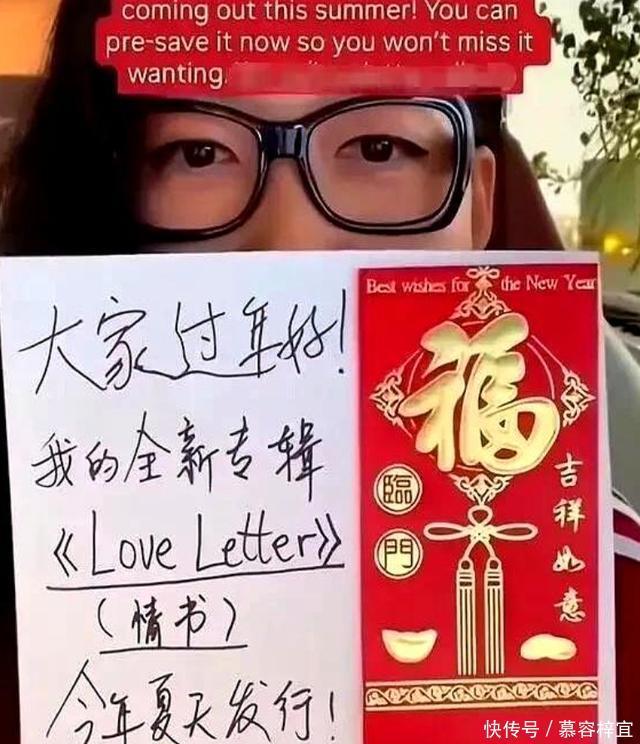 coming out this summer! You can
pre-save it now so you won't miss it
wanting.
大家过年好!
我的全新专辑
《Love Letter》
(情书)
今年夏天发行!
Best wishes for the New Year
福
臨
門
吉祥如意
快传号/慕容梓宜